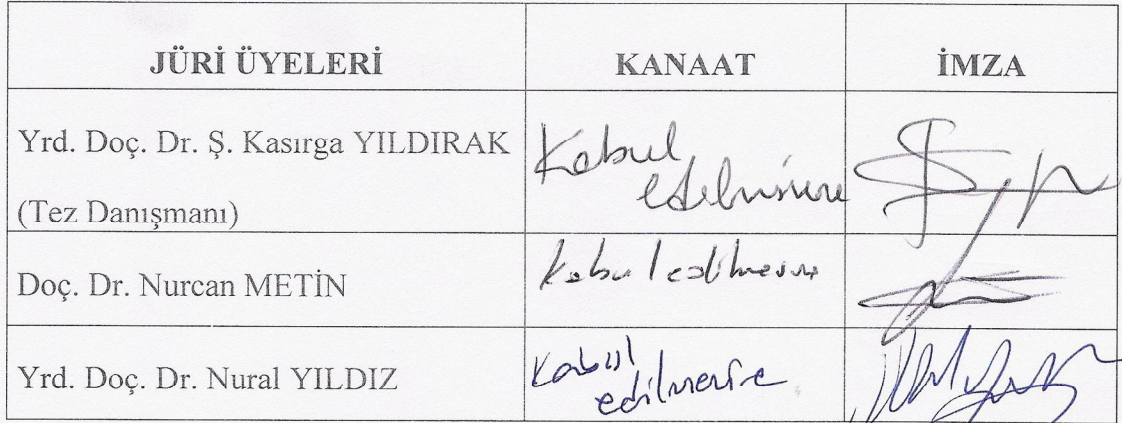 JÜRİ ÜYELERİ KANAAT İMZA
Yrd. Doç. Dr. Ş. Kasırga YILDIRAK
(Tez Danışmanı)
Kabul
edilmesine
Doç. Dr. Nurcan METİN
Kabul edilmesine
Yrd. Doç. Dr. Nural YILDIZ
Kabul
edilmesine